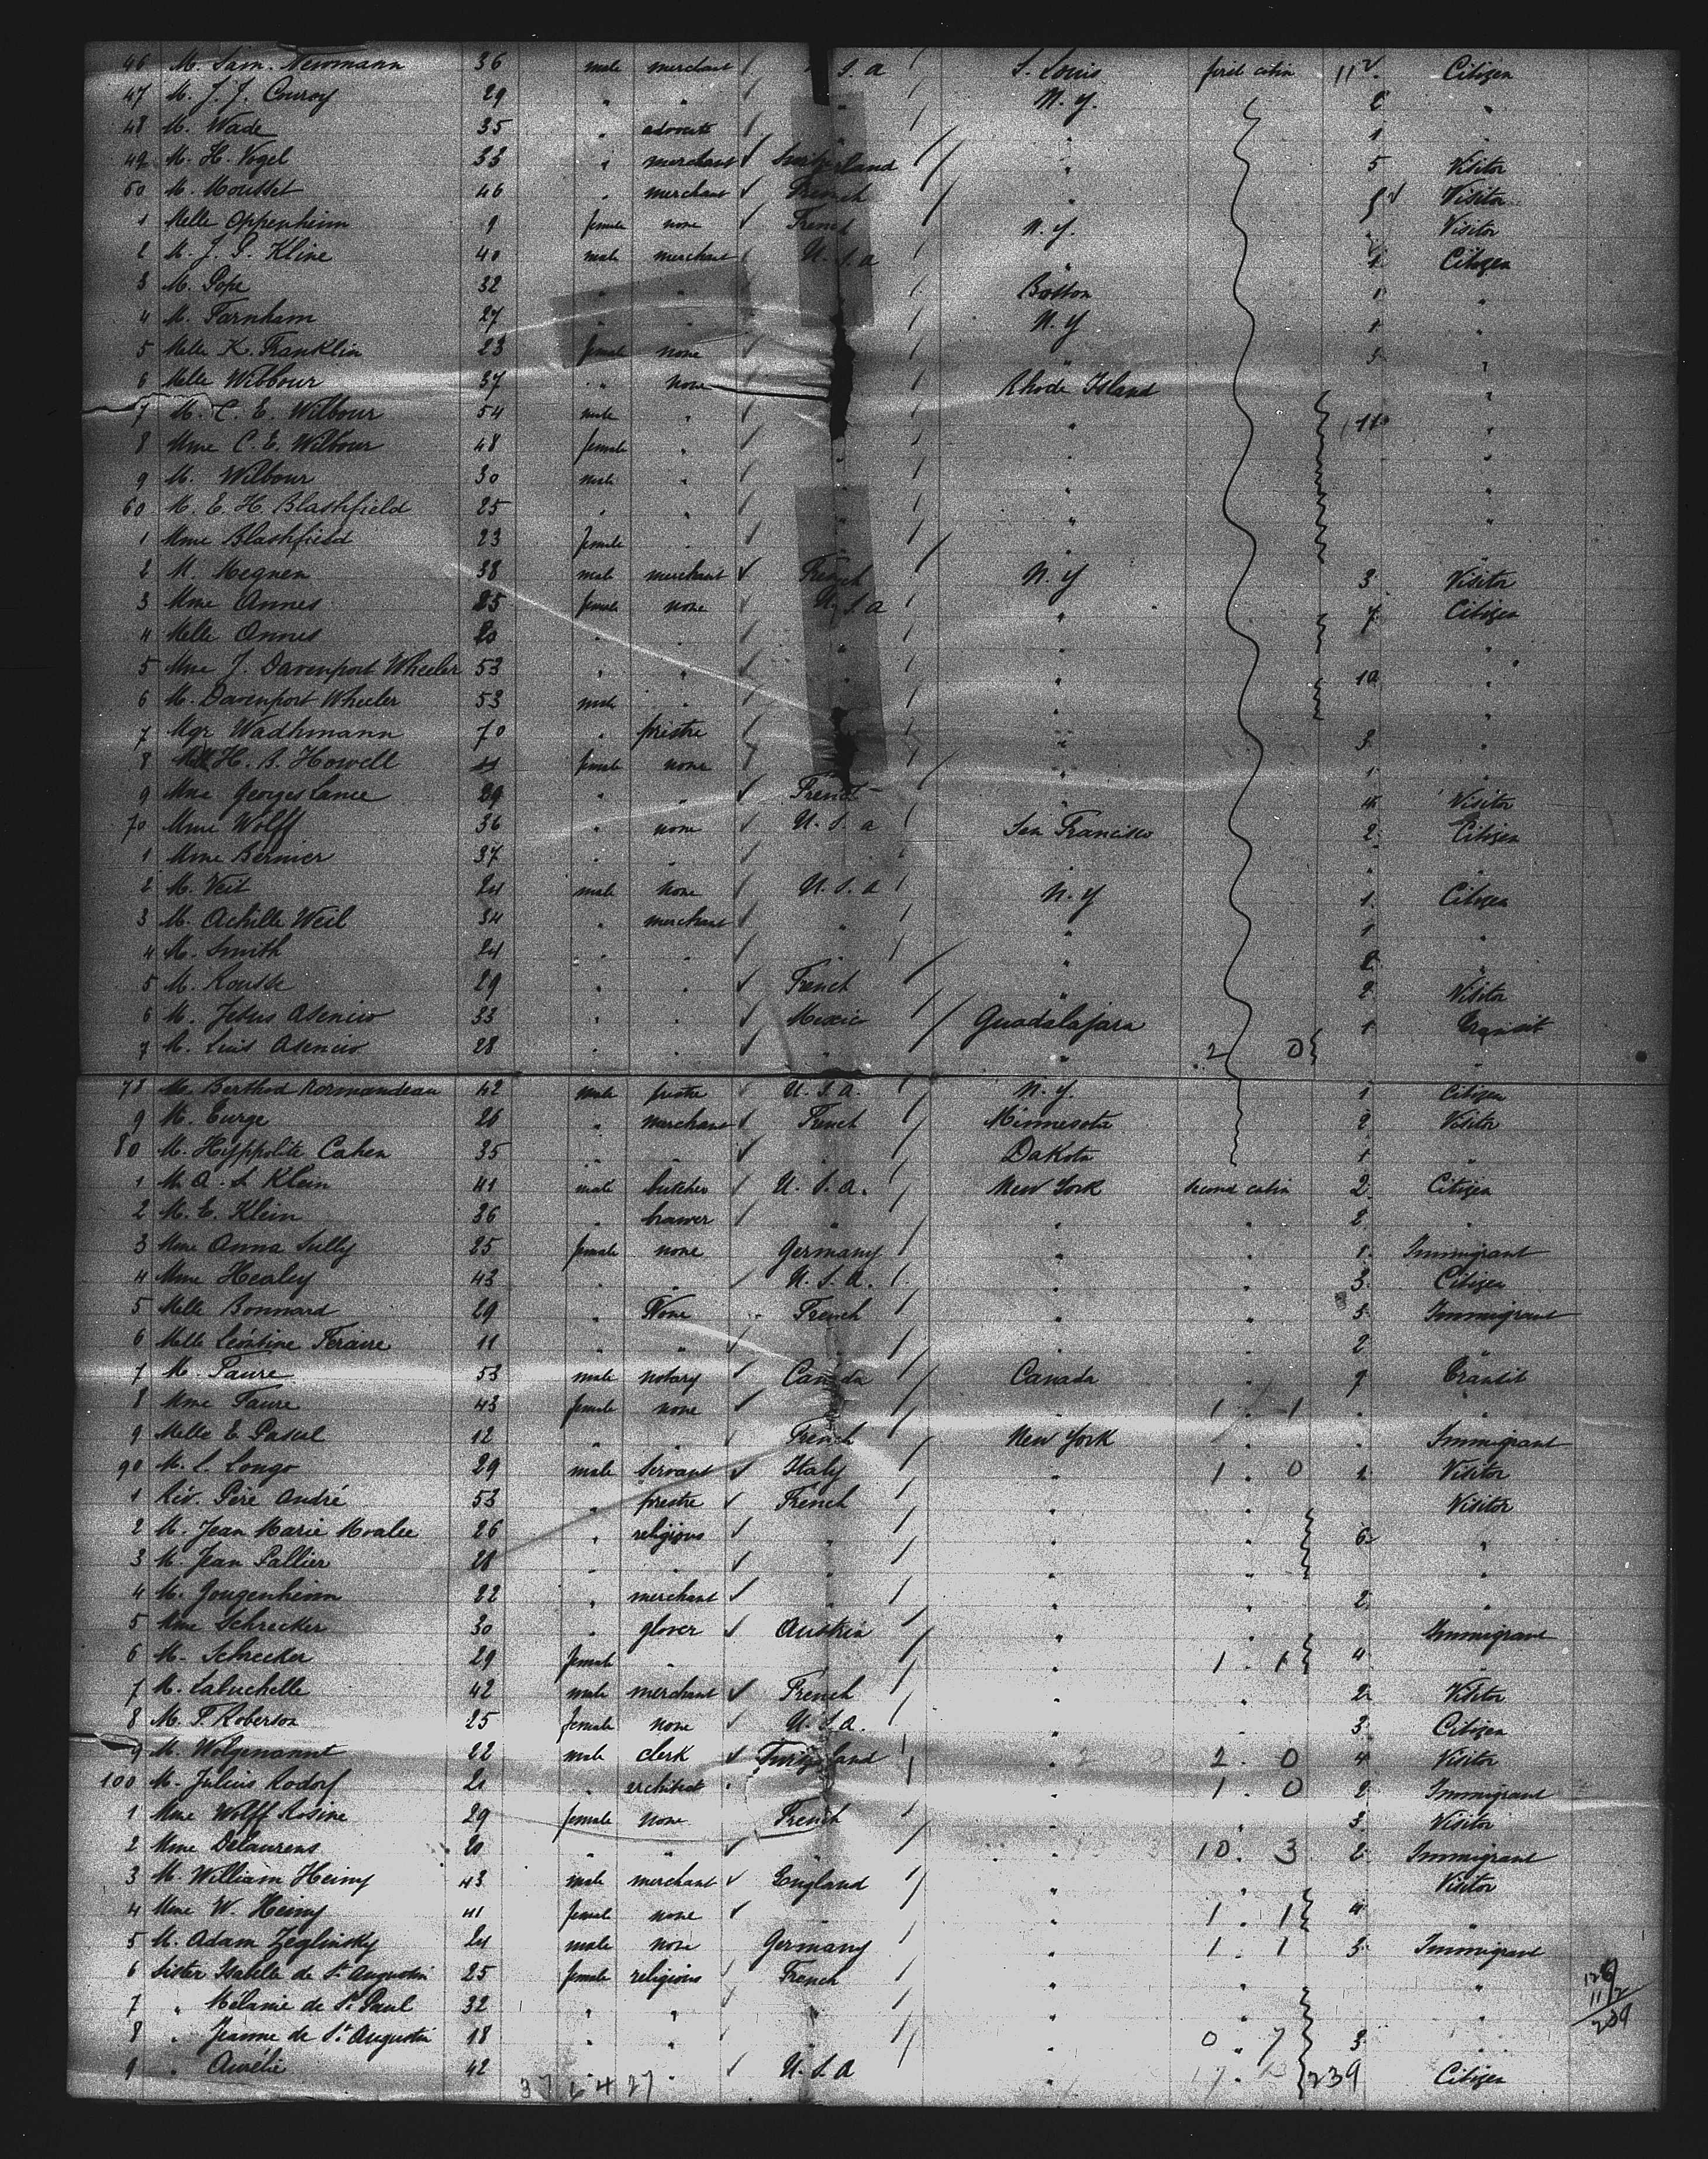 46 M. Sam. Newmann 36 male merchant U.S.a S. Louis first cabin 11 Citizen
47 M. J. J. Conroy 29 " " " N.Y. 2 "
48 M. Wade 35 " advocate " " 1 "
49 M. H. Vogel 33 " merchant Switzerland " 5 Visitor
50 M. Mousset 46 " merchant French " Visitor
1 Melle Oppenheim 9 female none French N.Y. " Visitor
2 M. J. P. Kline 40 male merchant U.S.a " 1 Citizen
3 M. Pope 32 " " " Boston 1 "
4 M. Farnham 27 " " " N.Y 1 "
5 Melle K. Franklin 23 female none " " "
6 Melle Wilbour 37 " none " Rhode Island "
7 M. C. E. Wilbour 54 male " " " 11 "
8 Mme C. E. Wilbour 48 female " " " "
9 M. Wilbour 30 male " " " "
60 M. E. H. Blashfield 25 " " " " "
1 Mme Blashfield 23 female " " " "
2 M. Megnen 38 male merchant French N.Y 3 Visitor
3 Mme Annes 25 female none U.S.a " 7 Citizen
4 Melle Annes 20 " " " " "
5 Mme J. Davenport Wheeler 53 " " " " 10 "
6 M. Davenport Wheeler 53 male " " " "
7 Mgr Wadhmann 70 " priestre " " 3 "
8 H. B. Howell female none " " 1 "
9 Mme Georges Lance 29 " " French " Visitor
70 Mme Wolff 36 " none U.S.a San Francisco 2 Citizen
1 Mme Bernier 37 " " " " " "
2 M. Veit 24 male none U.S.a N.Y 1 Citizen
3 M. Achille Weil 34 " merchant " " 1 "
4 M. Smith 24 " " " " 2 "
5 M. Rousse 29 " " French " 2 Visitor
6 M. Jesus Asencio 33 " " Mexico Guadalajara 1 Transit
7 M. Luis Asencio 28 " " " " 2 0 " "
78 M. Berthod Normandeau 42 male pristre U.S.A. N.Y. 1 Citizen
9 M. Curge 26 " merchant French Minnesota 2 Visitor
80 M. Hyppolite Cahen 35 " " " Dakota 1 "
1 M. A. S. Klein 41 male butcher U.S.a. New York second cabin 2 Citizen
2 M. E. Klein 36 " brawer " " " 2 "
3 Mme Anna Sully 25 female none Germany " " 1 Immigrant
4 Mme Healey 43 " " U.S.A. " " 3 Citizen
5 Melle Bonnard 29 " None French " " 5 Immigrant
6 Melle Léontine Feraire 11 " " " " " 2 "
7 M. Faure 53 male notary Canada Canada " 9 Transit
8 Mme Faure 43 female none " " 1 1 " "
9 Melle E. Pascal 12 " " French New York " " Immigrant
90 M. C. Longo 29 male servant Italy " 1 0 1 Visitor
1 Rév. Père André 53 " prestre French " " Visitor
2 M. Jean Marie Moalee 26 " religious " " " 6 "
3 M. Jean Pallier 28 " " " " " "
4 M. Gougenheim 22 " merchant " " " 2 "
5 Mme Schrecker 30 " glover Austria " " Immigrant
6 M. Schrecker 29 female " " " 1 1 4 "
7 M. Labuchelle 42 male merchant French " " 2 Visitor
8 M. P. Roberson 25 female none U.S.a. " " 3 Citizen
9 M. Wolgenannt 22 male clerk " 2 0 4 Visitor
100 M. Julius Rodorf 21 " architect " " 1 0 2 Immigrant
1 Mme Wolff Rosine 29 female none French " " 3 Visitor
2 Mme Delaurens 20 " " " " 10 3 2 Immigrant
3 M. William Heimy 43 male merchant England " " Visitor
4 Mme W. Heimy 41 female none " " 1 1 4 "
5 M. Adam Zeglinsky 24 male none Germany " 1 1 3 Immigrant
6 Sister Isabelle de St Augustin 25 female religious French " " "
7 " Mélanie de St Paul 32 " " " " " "
8 " Jeanne de St Augustin 18 " " " " 0 7 3 "
9 " Aurélie 42 " " U.S.A " 17 239 Citizen
239